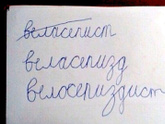 веласепист
веласепизд
велосериздист